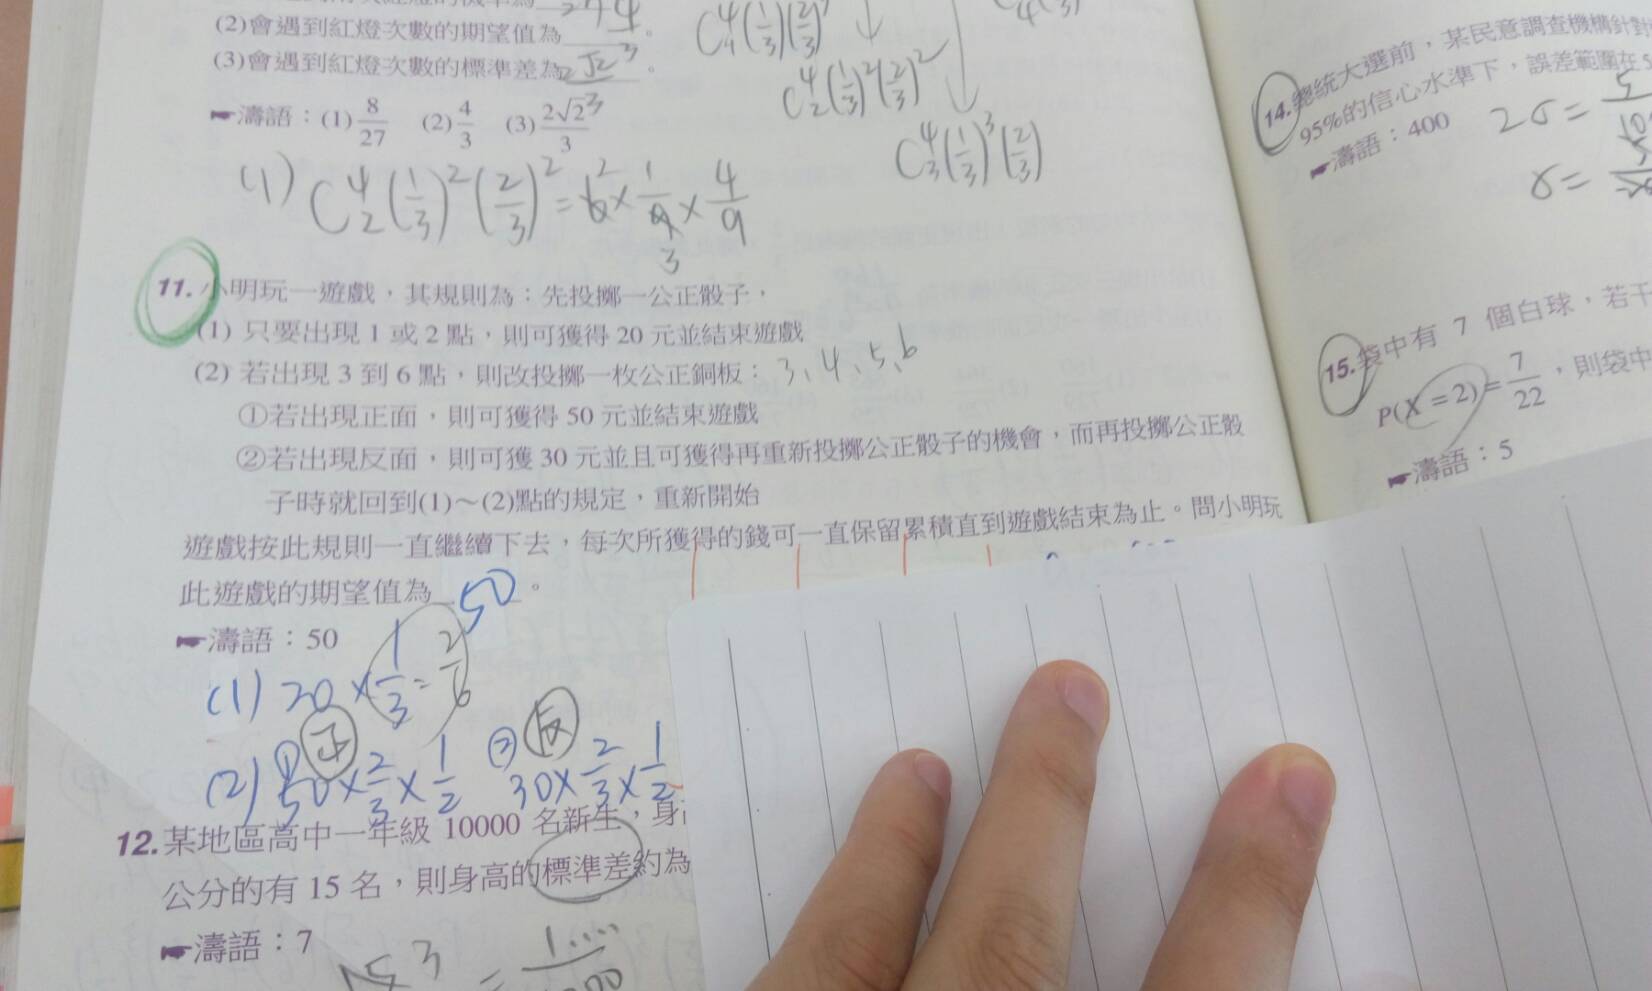 (2)會遇到紅燈次數的期望值為 。
(3)會遇到紅燈次數的標準差為 。
濤語：(1) 8/27 (2) 4/3 (3) 2√2/3
C⁴₂(1/3)²(2/3)²
C⁴₃(1/3)³(2/3)
(1) C⁴₂(1/3)²(2/3)² = 6 × 1/9 × 4/9
2
3
11. 小明玩一遊戲，其規則為：先投擲一公正骰子，
(1) 只要出現 1 或 2 點，則可獲得 20 元並結束遊戲
(2) 若出現 3 到 6 點，則改投擲一枚公正銅板： 3、4、5、6
①若出現正面，則可獲得 50 元並結束遊戲
②若出現反面，則可獲 30 元並且可獲得再重新投擲公正骰子的機會，而再投擲公正骰
子時就回到(1)～(2)點的規定，重新開始
遊戲按此規則一直繼續下去，每次所獲得的錢可一直保留累積直到遊戲結束為止。問小明玩
此遊戲的期望值為 50 。
濤語：50
(1) 20 × 1/3 = 2/6
正 反
(2) ① 50 × 2/3 × 1/2 ② 30 × 2/3 × 1/2
12. 某地區高中一年級 10000 名新生，身
公分的有 15 名，則身高的標準差約為
濤語：7
14. 總統大選前，某民意調查機構針對
95%的信心水準下，誤差範圍在
濤語：400
2σ =
σ =
15. 袋中有 7 個白球，若干
P(X = 2) = 7/22，則袋中
濤語：5